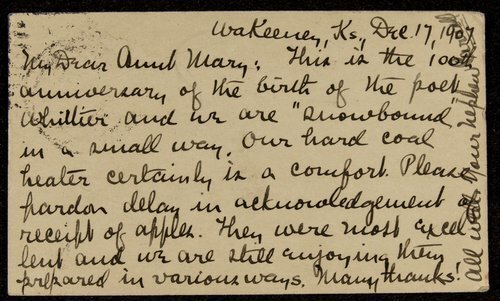 WaKeeney, Ks., Dec. 17, 1907
My Dear Aunt Mary: This is the 100th
anniversary of the birth of the poet
Whittier and we are "snowbound
in a small way. Our hard coal
heater certainly is a comfort. Please
pardon delay in acknowledgement of
receipt of apples. They were most excel
lent and we are still enjoying them
prepared in various ways. Many thanks!
All well. Your nephew